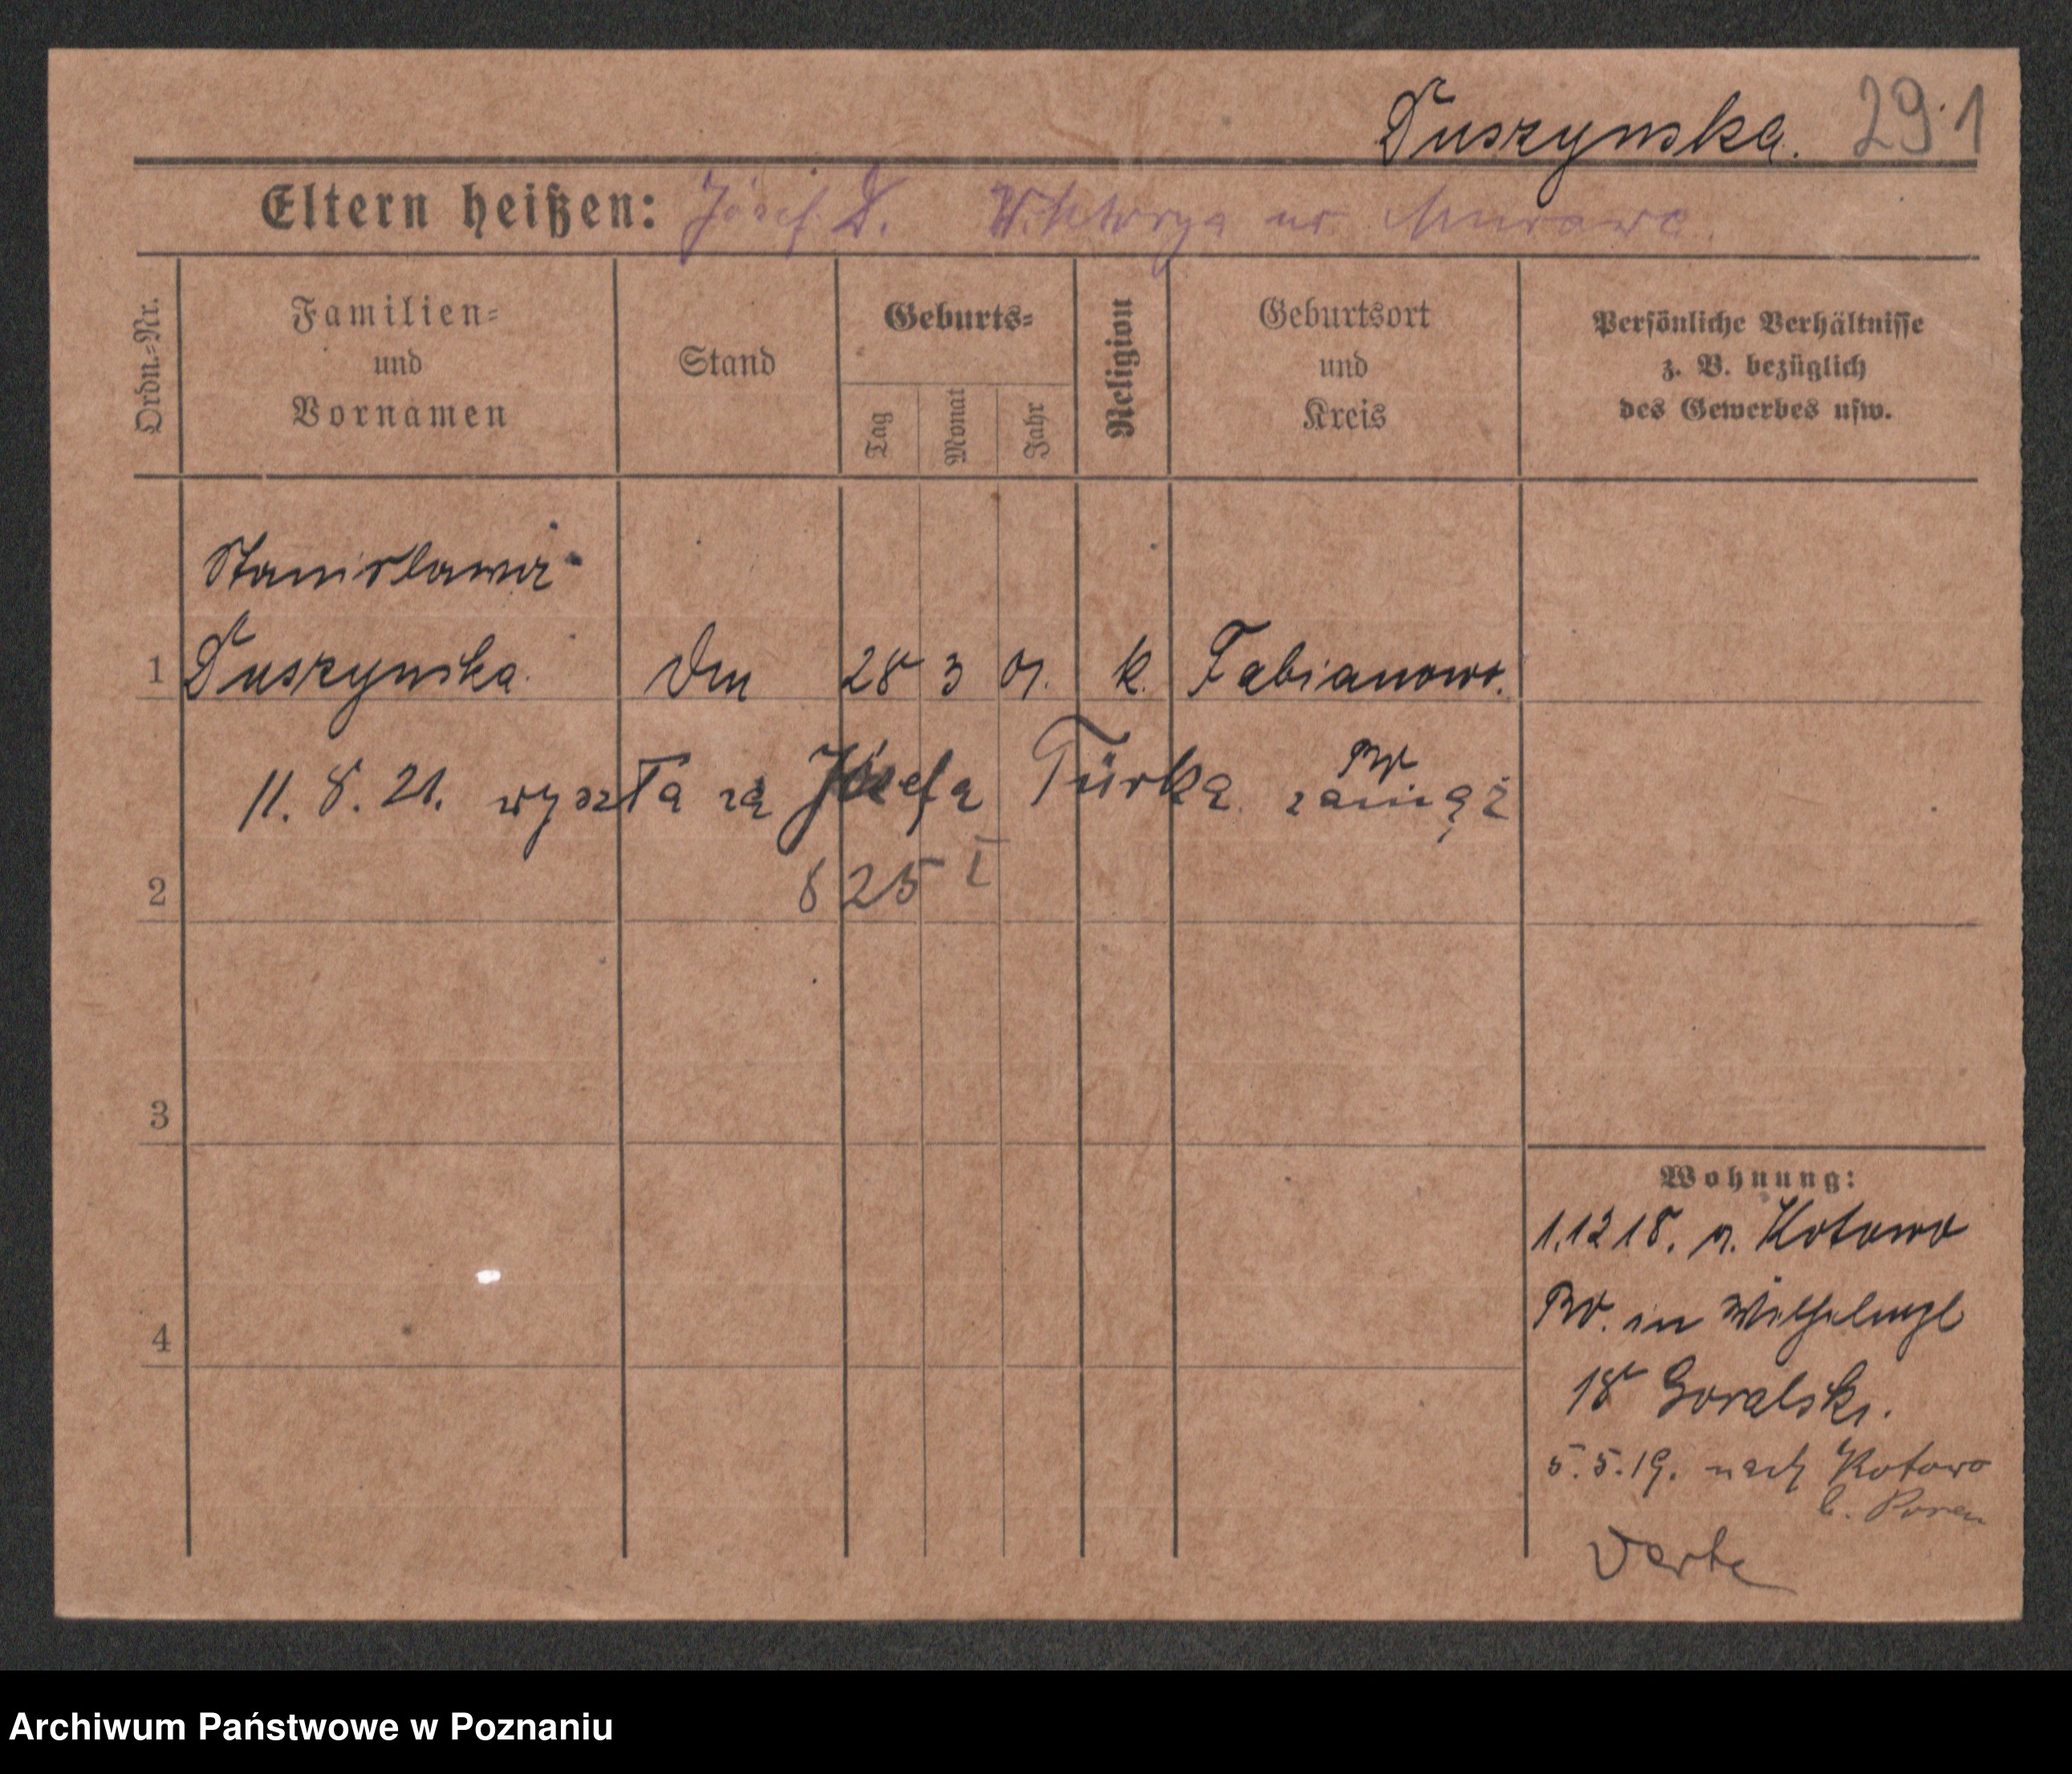 Duszynska. 291
Eltern heißen: Józef D. Wiktorya ur. Murawa.
Ordn.-Nr.
Familien-
und
Vornamen
Stand
Geburts-
Tag
Monat
Jahr
Religion
Geburtsort
und
Kreis
Persönliche Verhältnisse
z. B. bezüglich
des Gewerbes usw.
Stanislawa
1 Duszynska. 28 3 01. k. Fabianowo.
11. 8. 21. wyszła za Józefa Türka zamąż
2 825 I
3
4
Wohnung:
1.12 18. n. Kotowo
in
18 Goralski.
5.5.19. nach Kotowo
b. Posen
Verte
Archiwum Państwowe w Poznaniu